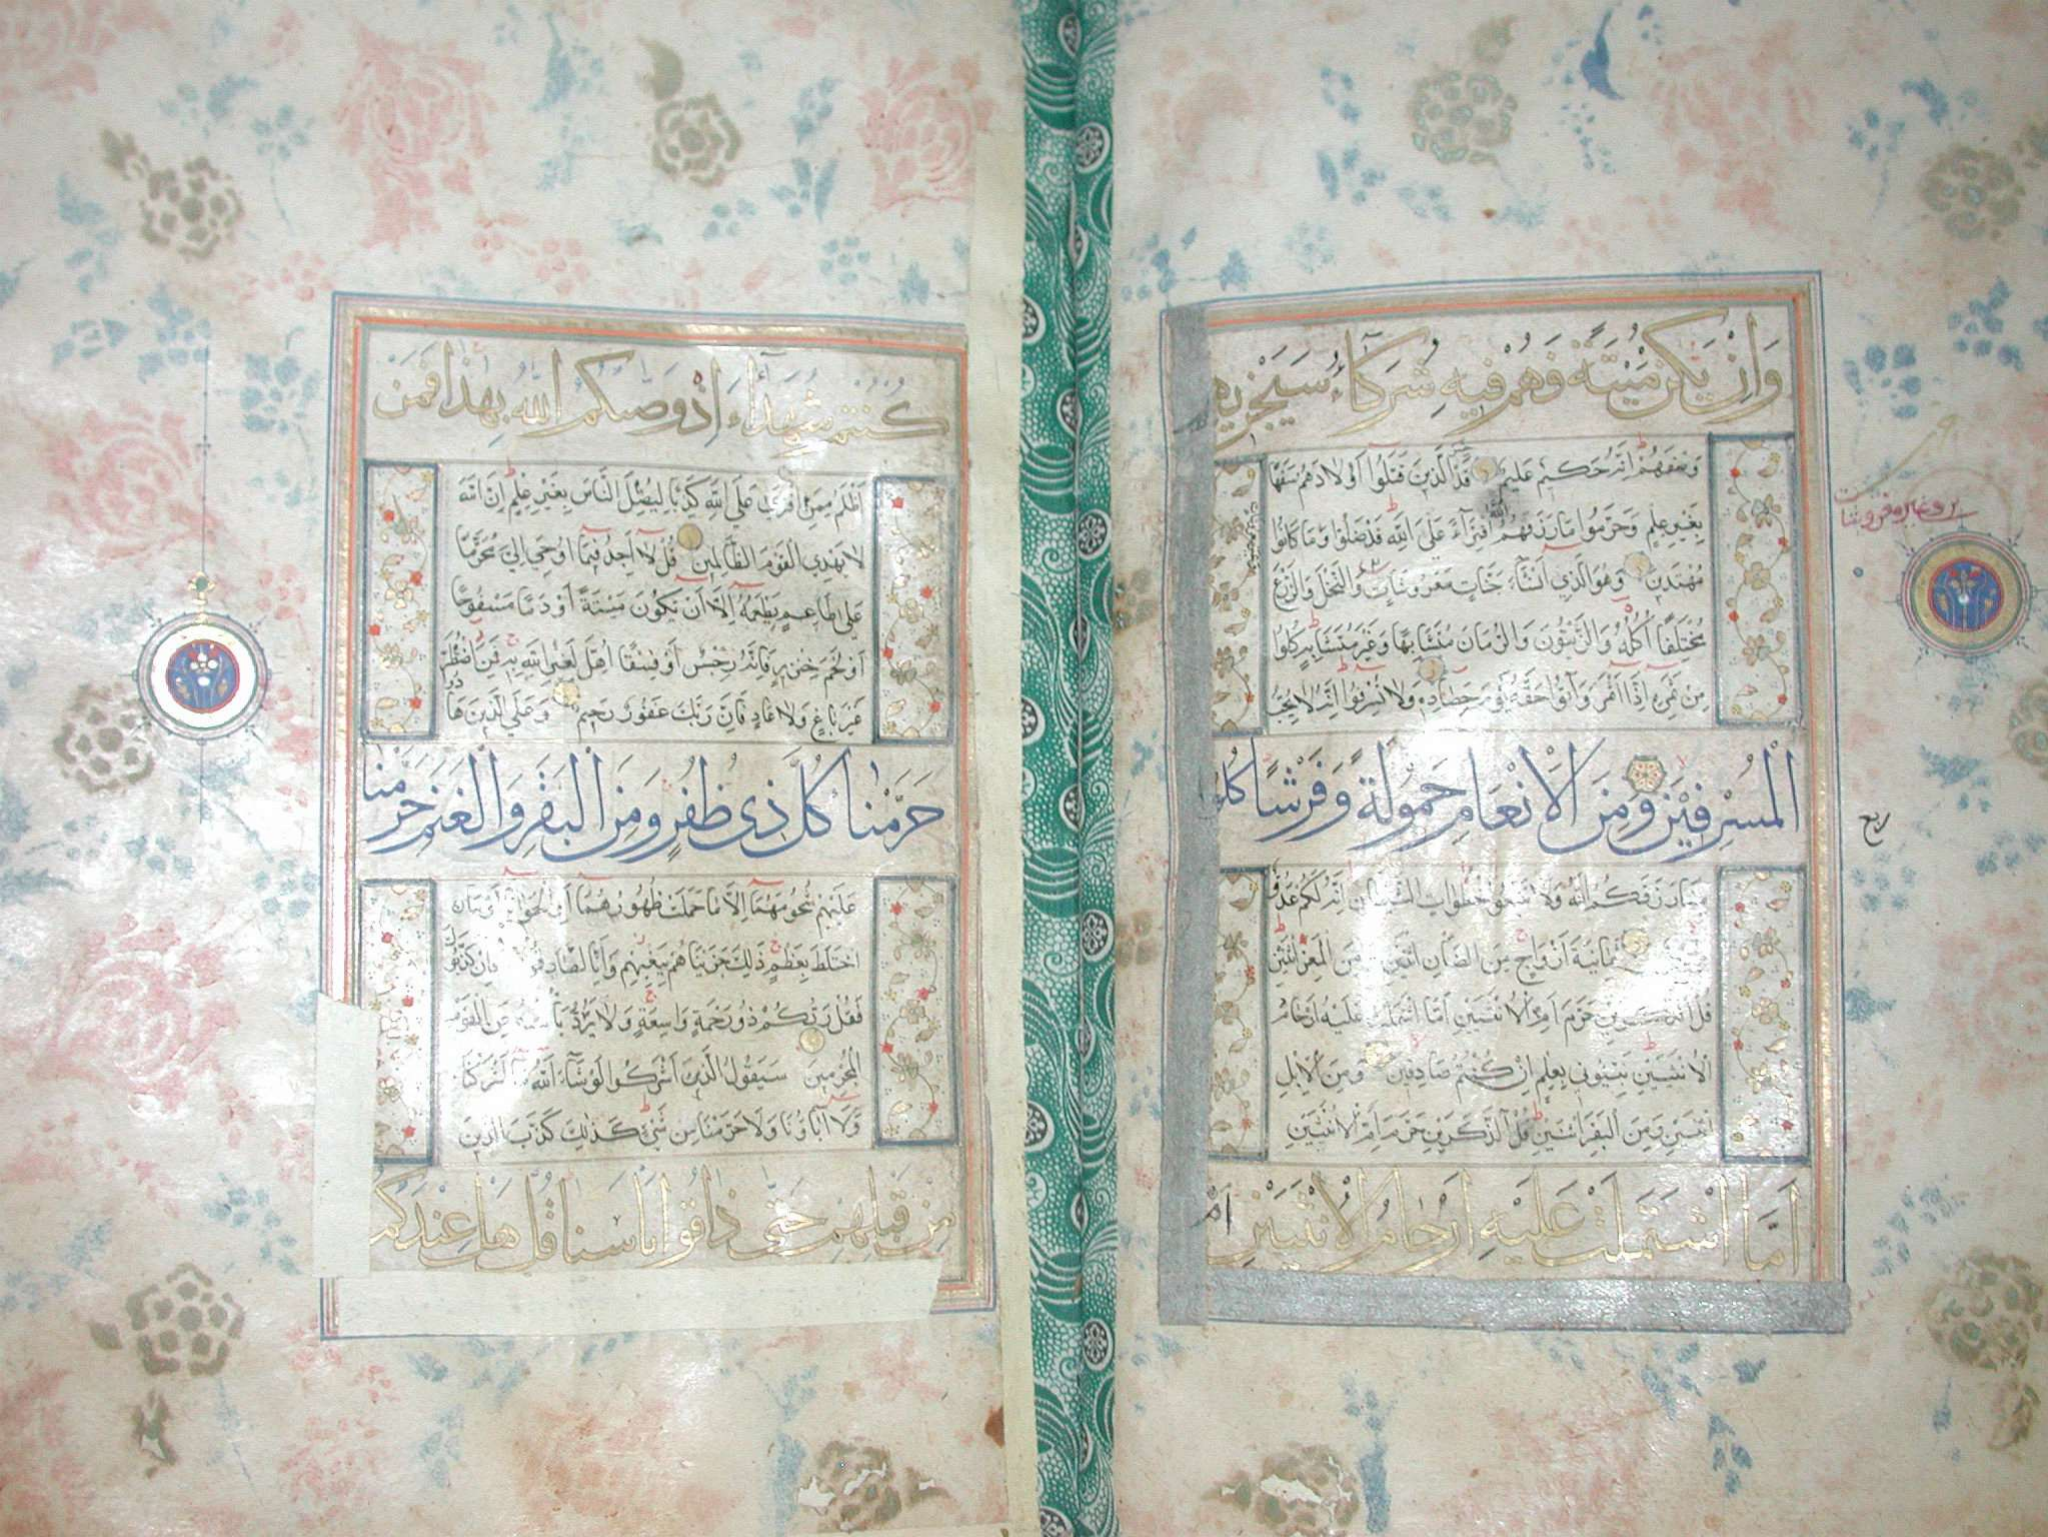 وَاِنْ يَكُنْ مَيْتَةً فَهُمْ فيهِ شُرَكَآءُ سَيَجْزيهِمْ
وَصْفَهُمْ اِنَّهُ حَكيمٌ عَليمٌ قَدْ خَسِرَ الَّذينَ قَتَلُوا اَوْلَادَهُمْ سَفَهًا
بِغَيْرِ عِلْمٍ وَحَرَّمُوا مَا رَزَقَهُمُ اللهُ افْتِرَآءً عَلَى اللهِ قَدْ ضَلُّوا وَمَا كَانُوا
مُهْتَدينَ وَهُوَ الَّذي اَنْشَاَ جَنَّاتٍ مَعْرُوشَاتٍ وَالنَّخْلَ وَالزَّرْعَ
مُخْتَلِفًا اُكُلُهُ وَالزَّيْتُونَ وَالرُّمَّانَ مُتَشَابِهًا وَغَيْرَ مُتَشَابِهٍ كُلُوا
مِنْ ثَمَرِهِ اِذَا اَثْمَرَ وَآتُوا حَقَّهُ يَوْمَ حَصَادِهِ وَلَا تُسْرِفُوا اِنَّهُ لَا يُحِبُّ
الْمُسْرِفينَ وَمِنَ الْاَنْعَامِ حَمُولَةً وَفَرْشًا كُلُوا
مِمَّا رَزَقَكُمُ اللهُ وَلَا تَتَّبِعُوا خُطُوَاتِ الشَّيْطَانِ اِنَّهُ لَكُمْ عَدُوٌّ
ثَمَانِيَةَ اَزْوَاجٍ مِنَ الضَّأْنِ اثْنَيْنِ وَمِنَ الْمَعْزِ اثْنَيْنِ
قُلْ آلذَّكَرَيْنِ حَرَّمَ اَمِ الْاُنْثَيَيْنِ اَمَّا اشْتَمَلَتْ عَلَيْهِ اَرْحَامُ
الْاُنْثَيَيْنِ نَبِّئُوني بِعِلْمٍ اِنْ كُنْتُمْ صَادِقينَ وَمِنَ الْاِبِلِ
اثْنَيْنِ وَمِنَ الْبَقَرِ اثْنَيْنِ قُلْ آلذَّكَرَيْنِ حَرَّمَ اَمِ الْاُنْثَيَيْنِ
اَمَّا اشْتَمَلَتْ عَلَيْهِ اَرْحَامُ الْاُنْثَيَيْنِ اَمْ
ربع
كُنْتُمْ شُهَدَآءَ اِذْ وَصّٰىكُمُ اللهُ بِهٰذَا فَمَنْ
اَظْلَمُ مِمَّنِ افْتَرٰى عَلَى اللهِ كَذِبًا لِيُضِلَّ النَّاسَ بِغَيْرِ عِلْمٍ اِنَّ اللهَ
لَا يَهْدِي الْقَوْمَ الظَّالِمينَ قُلْ لَا اَجِدُ فيمَا اُوحِيَ اِلَيَّ مُحَرَّمًا
عَلٰى طَاعِمٍ يَطْعَمُهُ اِلَّا اَنْ يَكُونَ مَيْتَةً اَوْ دَمًا مَسْفُوحًا
اَوْ لَحْمَ خِنْزيرٍ فَاِنَّهُ رِجْسٌ اَوْ فِسْقًا اُهِلَّ لِغَيْرِ اللهِ بِهِ فَمَنِ اضْطُرَّ
غَيْرَ بَاغٍ وَلَا عَادٍ فَاِنَّ رَبَّكَ غَفُورٌ رَحيمٌ وَعَلَى الَّذينَ هَادُوا
حَرَّمْنَا كُلَّ ذي ظُفُرٍ وَمِنَ الْبَقَرِ وَالْغَنَمِ حَرَّمْنَا
عَلَيْهِمْ شُحُومَهُمَا اِلَّا مَا حَمَلَتْ ظُهُورُهُمَا اَوِ الْحَوَايَا اَوْ مَا
اخْتَلَطَ بِعَظْمٍ ذٰلِكَ جَزَيْنَاهُمْ بِبَغْيِهِمْ وَاِنَّا لَصَادِقُونَ فَاِنْ كَذَّبُوكَ
فَقُلْ رَبُّكُمْ ذُو رَحْمَةٍ وَاسِعَةٍ وَلَا يُرَدُّ بَأْسُهُ عَنِ الْقَوْمِ
الْمُجْرِمينَ سَيَقُولُ الَّذينَ اَشْرَكُوا لَوْ شَآءَ اللهُ مَا اَشْرَكْنَا
وَلَا آبَاؤُنَا وَلَا حَرَّمْنَا مِنْ شَيْءٍ كَذٰلِكَ كَذَّبَ الَّذينَ
مِنْ قَبْلِهِمْ حَتّٰى ذَاقُوا بَأْسَنَا قُلْ هَلْ عِنْدَكُمْ